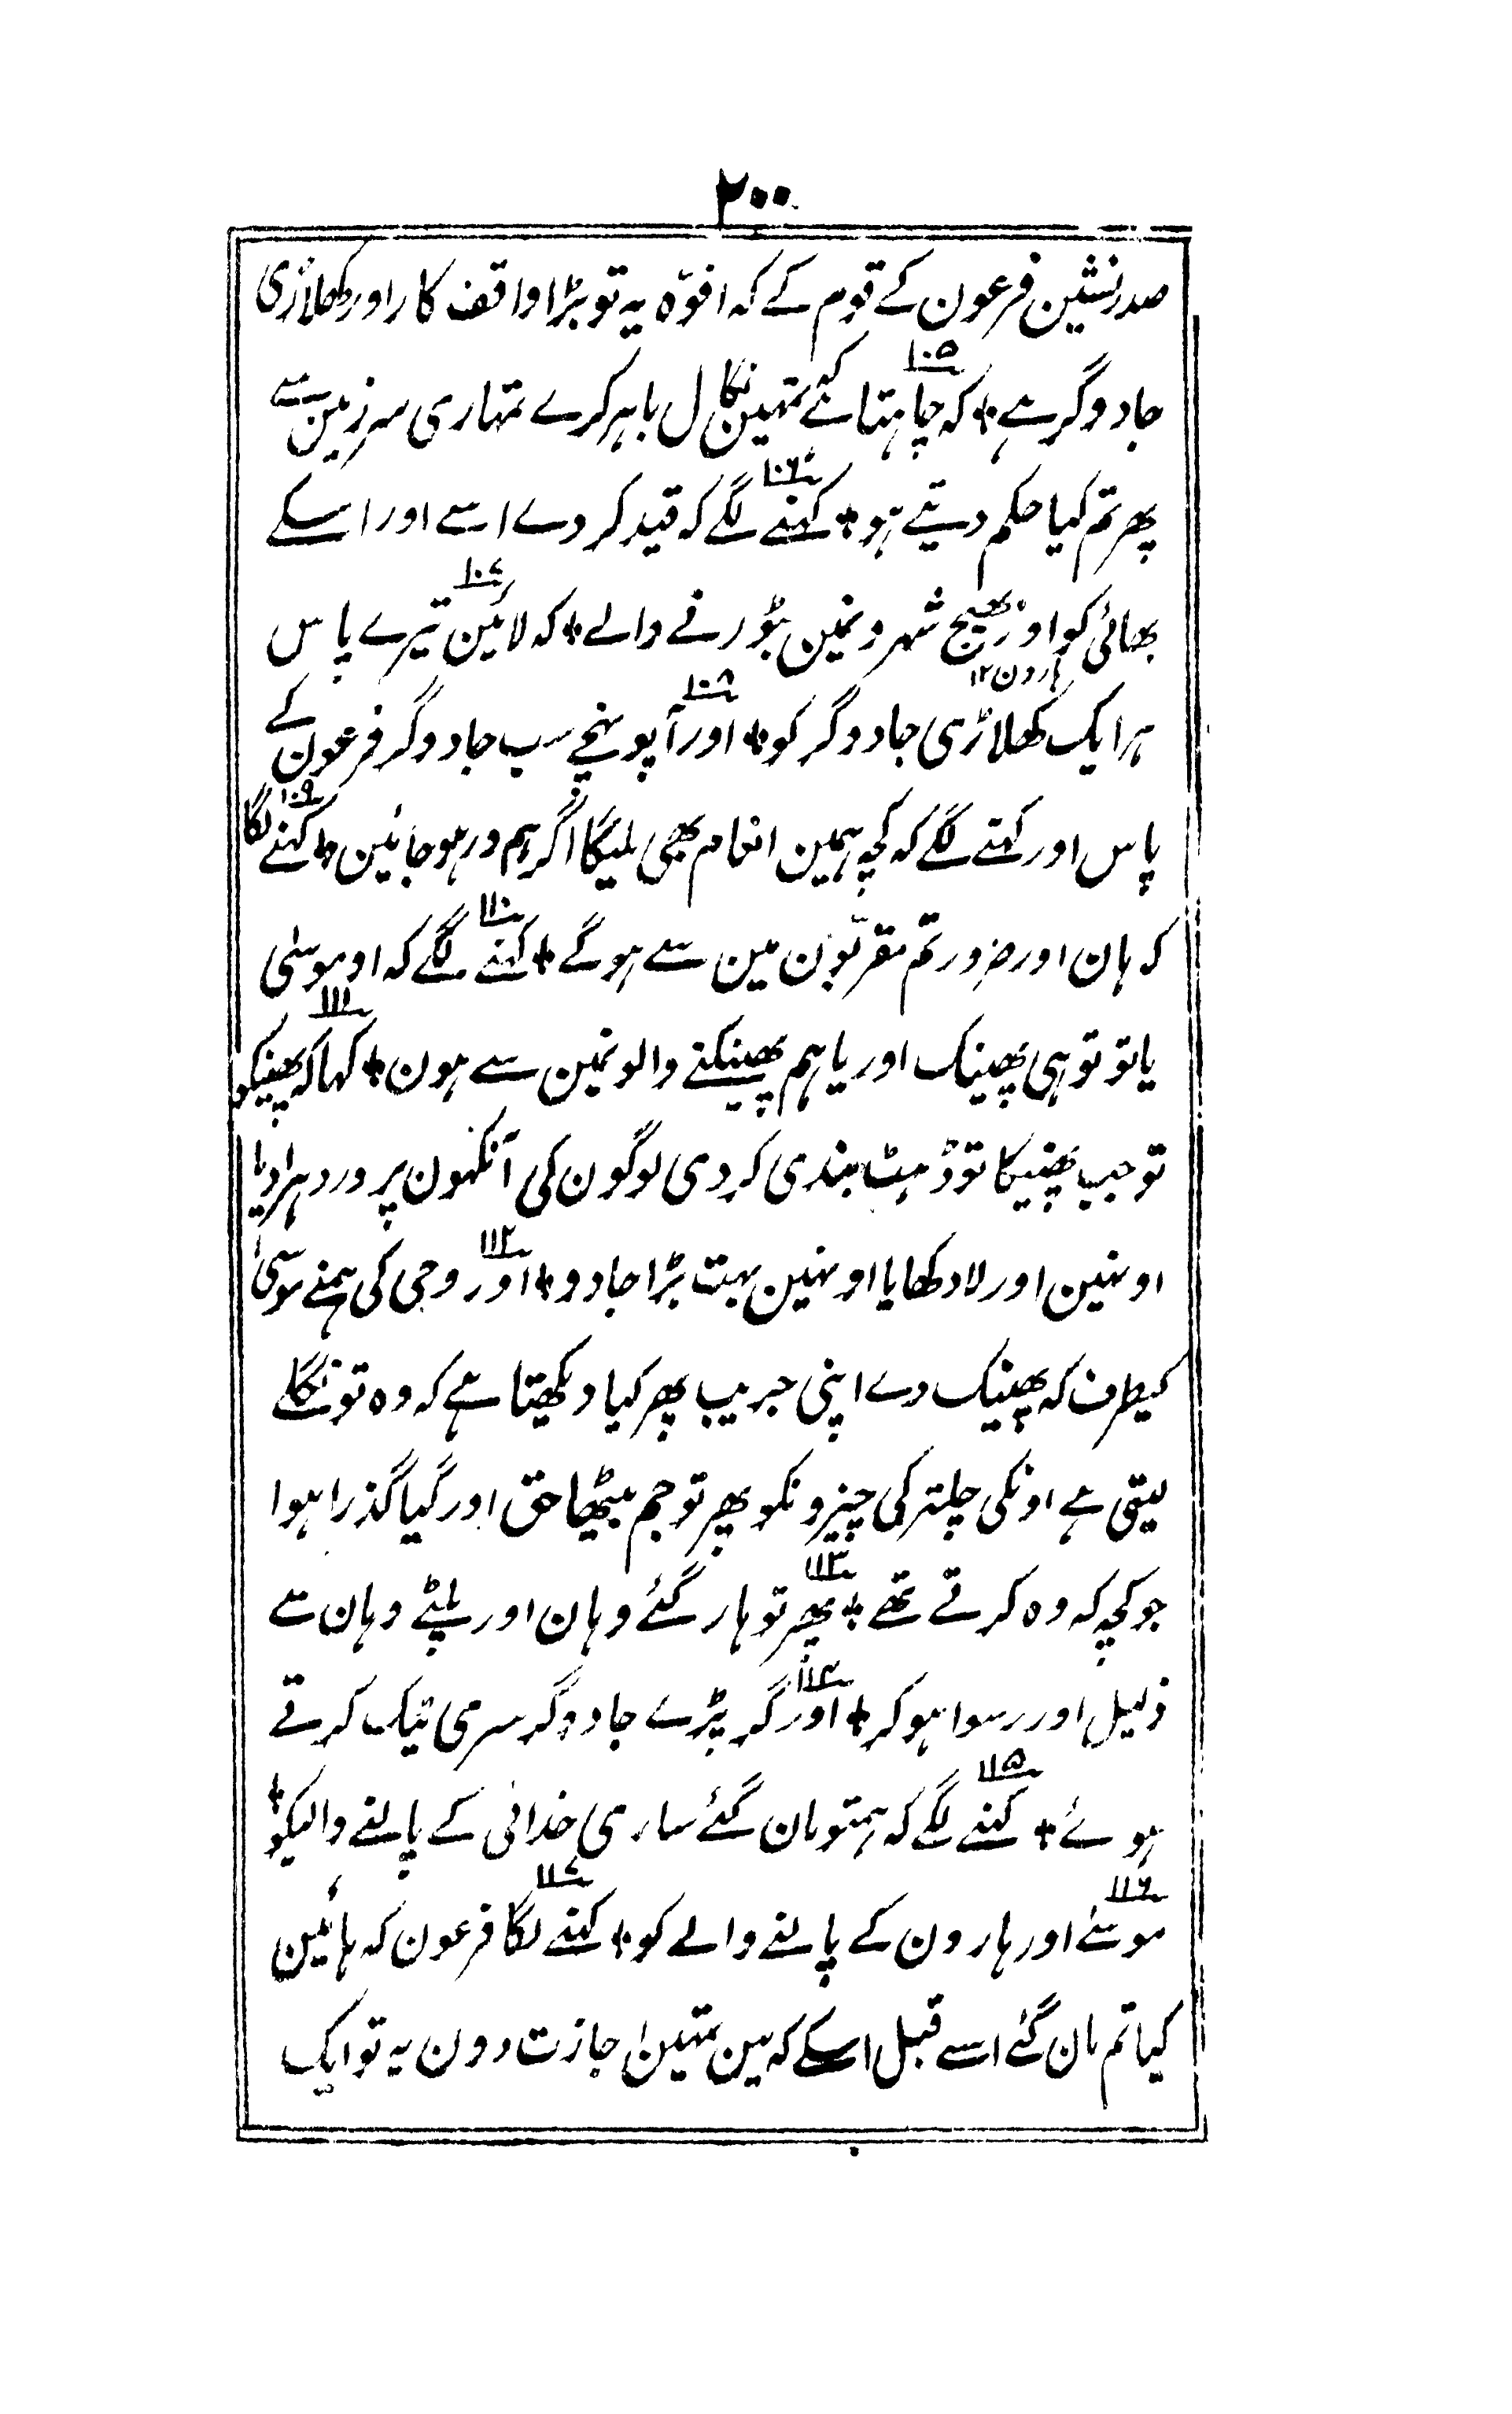 ۲۰۰
صدر نشین فرعون کے قوم کے کہ افوّہ یہ تو بڑا واقف کار اور کھلاڑی
جادوگر ہے ۱۰۵ کہ چاہتا ہے کہ تمہین نکال باہر کرے تمہاری سرزمین سے
پھر تم کیا حکم دیتے ہو ۱۰۶ کہنے لگے کہ قید کر دے اسے اور اسکے
بھائی کو اور بھیج شہرونمین بٹورنے والے ۱۰۷ کہ لائین تیرے پاس
ہارون ۱۲
ہر ایک کھلاڑی جادوگر کو ۱۰۸ اور آپہونچے سب جادوگر فرعون کے
پاس اور کہنے لگے کہ کچہ ہمین انعام بھی ملیگا اگر ہم ور ہو جائین ۱۰۹ کہنے لگا
کہ ہان اور ضرور تم مقرّبون مین سے ہوگے ۱۱۰ کہنے لگے کہ او موسٰی
یا تو توہی پھینک اور یا ہم پھینکنے والونمین سے ہون ۱۱۱ کہا کہ پھینکو
تو جب پھینکا تو ڈہٹ بندی کر دی لوگون کی آنکہون پر ور دہرا دیا
اونہین اور لا دکھایا اونہین بہت بڑا جادو ۱۱۲ اور وحی کی ہمنے موسیٰ
کیطرف کہ پھینک دے اپنی جریب پھر کیا دیکھتا ہے کہ وہ تو نگلے
لیتی ہے اونکی چلتر کی چیزونکو پھر تو جم بیٹھا حق اور گیا گذرا ہوا
جو کچہ کہ وہ کرتے تھے ۱۱۳ پھر تو ہار گئے وہان اور پلٹے وہان سے
ذلیل اور رسوا ہوکر ۱۱۴ اور گر پڑے جادوگر سر می ٹیک کرتے
ہوئے ۱۱۵ کہنے لگے کہ ہمتو مان گئے ساری خدائی کے پالنے والیکو
۱۱۶ موسیٰ اور ہارون کے پالنے والے کو ۱۱۷ کہنے لگا فرعون کہ ہائین
کیا تم مان گئے اسے قبل اسکے کہ مین تمہین اجازت دون یہ تو ایک